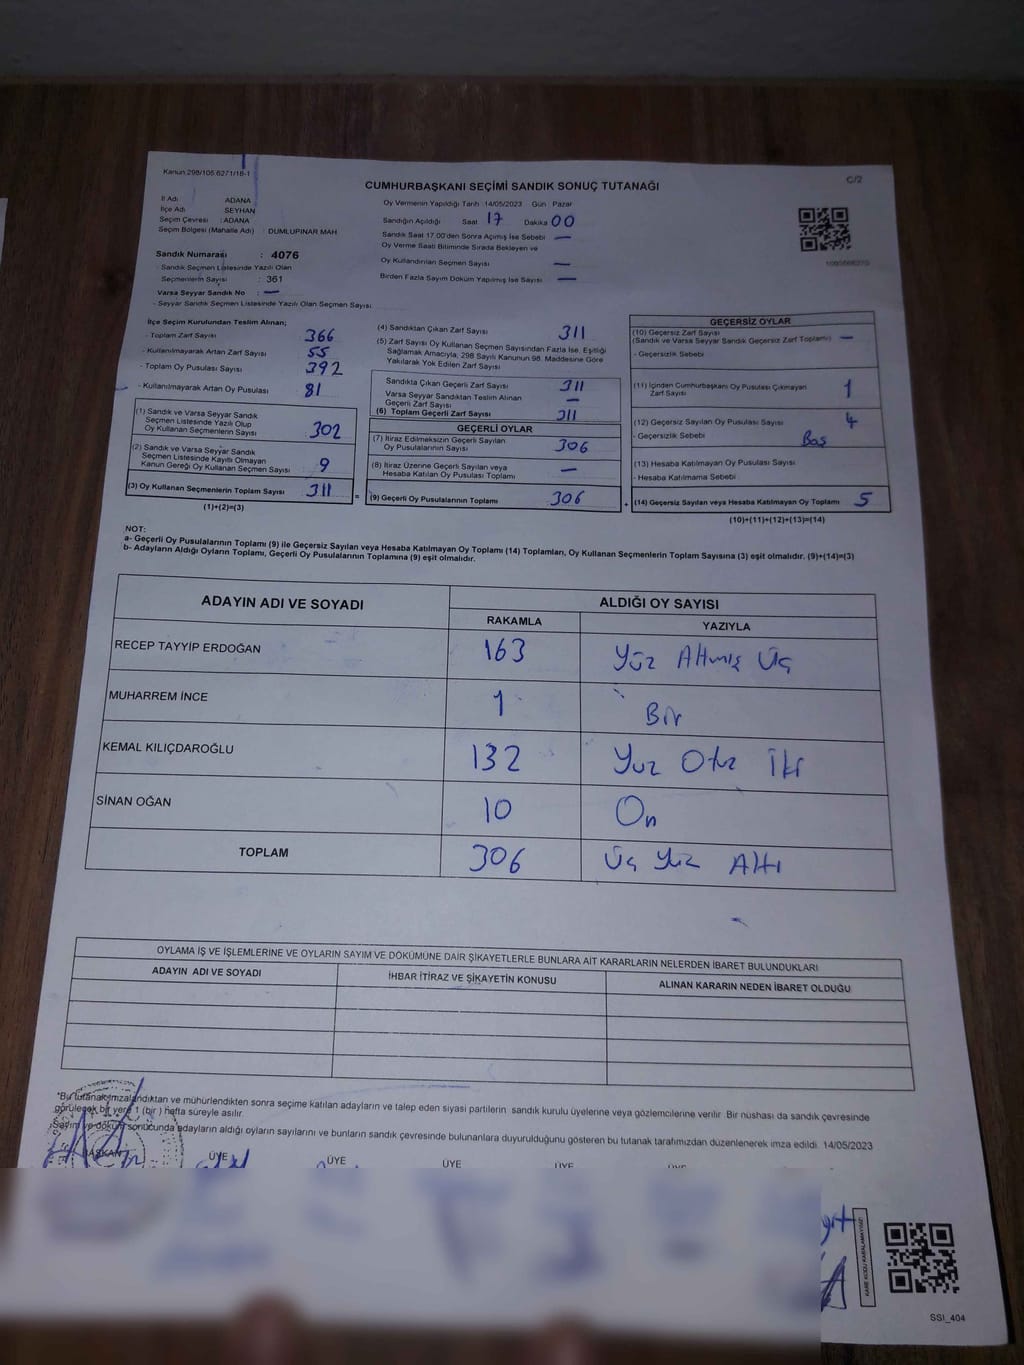 Kanun 298/105 6271/18-1
C/2
CUMHURBAŞKANI SEÇİMİ SANDIK SONUÇ TUTANAĞI
İl Adı ADANA
İlçe Adı SEYHAN
Seçim Çevresi : ADANA
Seçim Bölgesi (Mahalle Adı) : DUMLUPINAR MAH
Sandık Numarası : 4076
Sandık Seçmen Listesinde Yazılı Olan
Seçmenlerin Sayısı : 361
Varsa Seyyar Sandık No : —
- Seyyar Sandık Seçmen Listesinde Yazılı Olan Seçmen Sayısı
Oy Vermenin Yapıldığı Tarih 14/05/2023 Gün Pazar
Sandığın Açıldığı Saat 17 Dakika 00
Sandık Saat 17.00'den Sonra Açılmış İse Sebebi —
Oy Verme Saati Bitiminde Sırada Bekleyen ve
Oy Kullandırılan Seçmen Sayısı —
Birden Fazla Sayım Döküm Yapılmış İse Sayısı —
İlçe Seçim Kurulundan Teslim Alınan;
- Toplam Zarf Sayısı 366
- Kullanılmayarak Artan Zarf Sayısı 55
- Toplam Oy Pusulası Sayısı 392
- Kullanılmayarak Artan Oy Pusulası 81
(1) Sandık ve Varsa Seyyar Sandık
Seçmen Listesinde Yazılı Olup
Oy Kullanan Seçmenlerin Sayısı 302
(2) Sandık ve Varsa Seyyar Sandık
Seçmen Listesinde Kayıtlı Olmayan
Kanun Gereği Oy Kullanan Seçmen Sayısı 9
(3) Oy Kullanan Seçmenlerin Toplam Sayısı 311
(1)+(2)=(3)
=
(4) Sandıktan Çıkan Zarf Sayısı 311
(5) Zarf Sayısı Oy Kullanan Seçmen Sayısından Fazla İse, Eşitliği
Sağlamak Amacıyla, 298 Sayılı Kanunun 98. Maddesine Göre
Yakılarak Yok Edilen Zarf Sayısı
Sandıkta Çıkan Geçerli Zarf Sayısı 311
Varsa Seyyar Sandıktan Teslim Alınan
Geçerli Zarf Sayısı —
(6) Toplam Geçerli Zarf Sayısı 311
GEÇERLİ OYLAR
(7) İtiraz Edilmeksizin Geçerli Sayılan
Oy Pusulalarının Sayısı 306
(8) İtiraz Üzerine Geçerli Sayılan veya
Hesaba Katılan Oy Pusulası Toplamı —
(9) Geçerli Oy Pusulalarının Toplamı 306
+
GEÇERSİZ OYLAR
(10) Geçersiz Zarf Sayısı
(Sandık ve Varsa Seyyar Sandık Geçersiz Zarf Toplamı) —
- Geçersizlik Sebebi
(11) İçinden Cumhurbaşkanı Oy Pusulası Çıkmayan
Zarf Sayısı 1
(12) Geçersiz Sayılan Oy Pusulası Sayısı 4
- Geçersizlik Sebebi Boş
(13) Hesaba Katılmayan Oy Pusulası Sayısı
- Hesaba Katılmama Sebebi
(14) Geçersiz Sayılan veya Hesaba Katılmayan Oy Toplamı 5
(10)+(11)+(12)+(13)=(14)
NOT:
a- Geçerli Oy Pusulalarının Toplamı (9) ile Geçersiz Sayılan veya Hesaba Katılmayan Oy Toplamı (14) Toplamları, Oy Kullanan Seçmenlerin Toplam Sayısına (3) eşit olmalıdır. (9)+(14)=(3)
b- Adayların Aldığı Oyların Toplamı, Geçerli Oy Pusulalarının Toplamına (9) eşit olmalıdır.
ADAYIN ADI VE SOYADI
ALDIĞI OY SAYISI
RAKAMLA YAZIYLA
RECEP TAYYİP ERDOĞAN 163 Yüz Altmış Üç
MUHARREM İNCE 1 Bir
KEMAL KILIÇDAROĞLU 132 Yüz Otuz İki
SİNAN OĞAN 10 On
TOPLAM 306 Üç Yüz Altı
OYLAMA İŞ VE İŞLEMLERİNE VE OYLARIN SAYIM VE DÖKÜMÜNE DAİR ŞİKAYETLERLE BUNLARA AİT KARARLARIN NELERDEN İBARET BULUNDUKLARI
ADAYIN ADI VE SOYADI İHBAR İTİRAZ VE ŞİKAYETİN KONUSU ALINAN KARARIN NEDEN İBARET OLDUĞU
*Bu tutanak imzalandıktan ve mühürlendikten sonra seçime katılan adayların ve talep eden siyasi partilerin sandık kurulu üyelerine veya gözlemcilerine verilir. Bir nüshası da sandık çevresinde
görülecek bir yere 1 (bir) hafta süreyle asılır.
Sayım ve döküm sonucunda adayların aldığı oyların sayılarını ve bunların sandık çevresinde bulunanlara duyurulduğunu gösteren bu tutanak tarafımızdan düzenlenerek imza edildi. 14/05/2023
BAŞKAN ÜYE ÜYE ÜYE ÜYE
KARE KODU KARALAMAYINIZ!
SSI_404